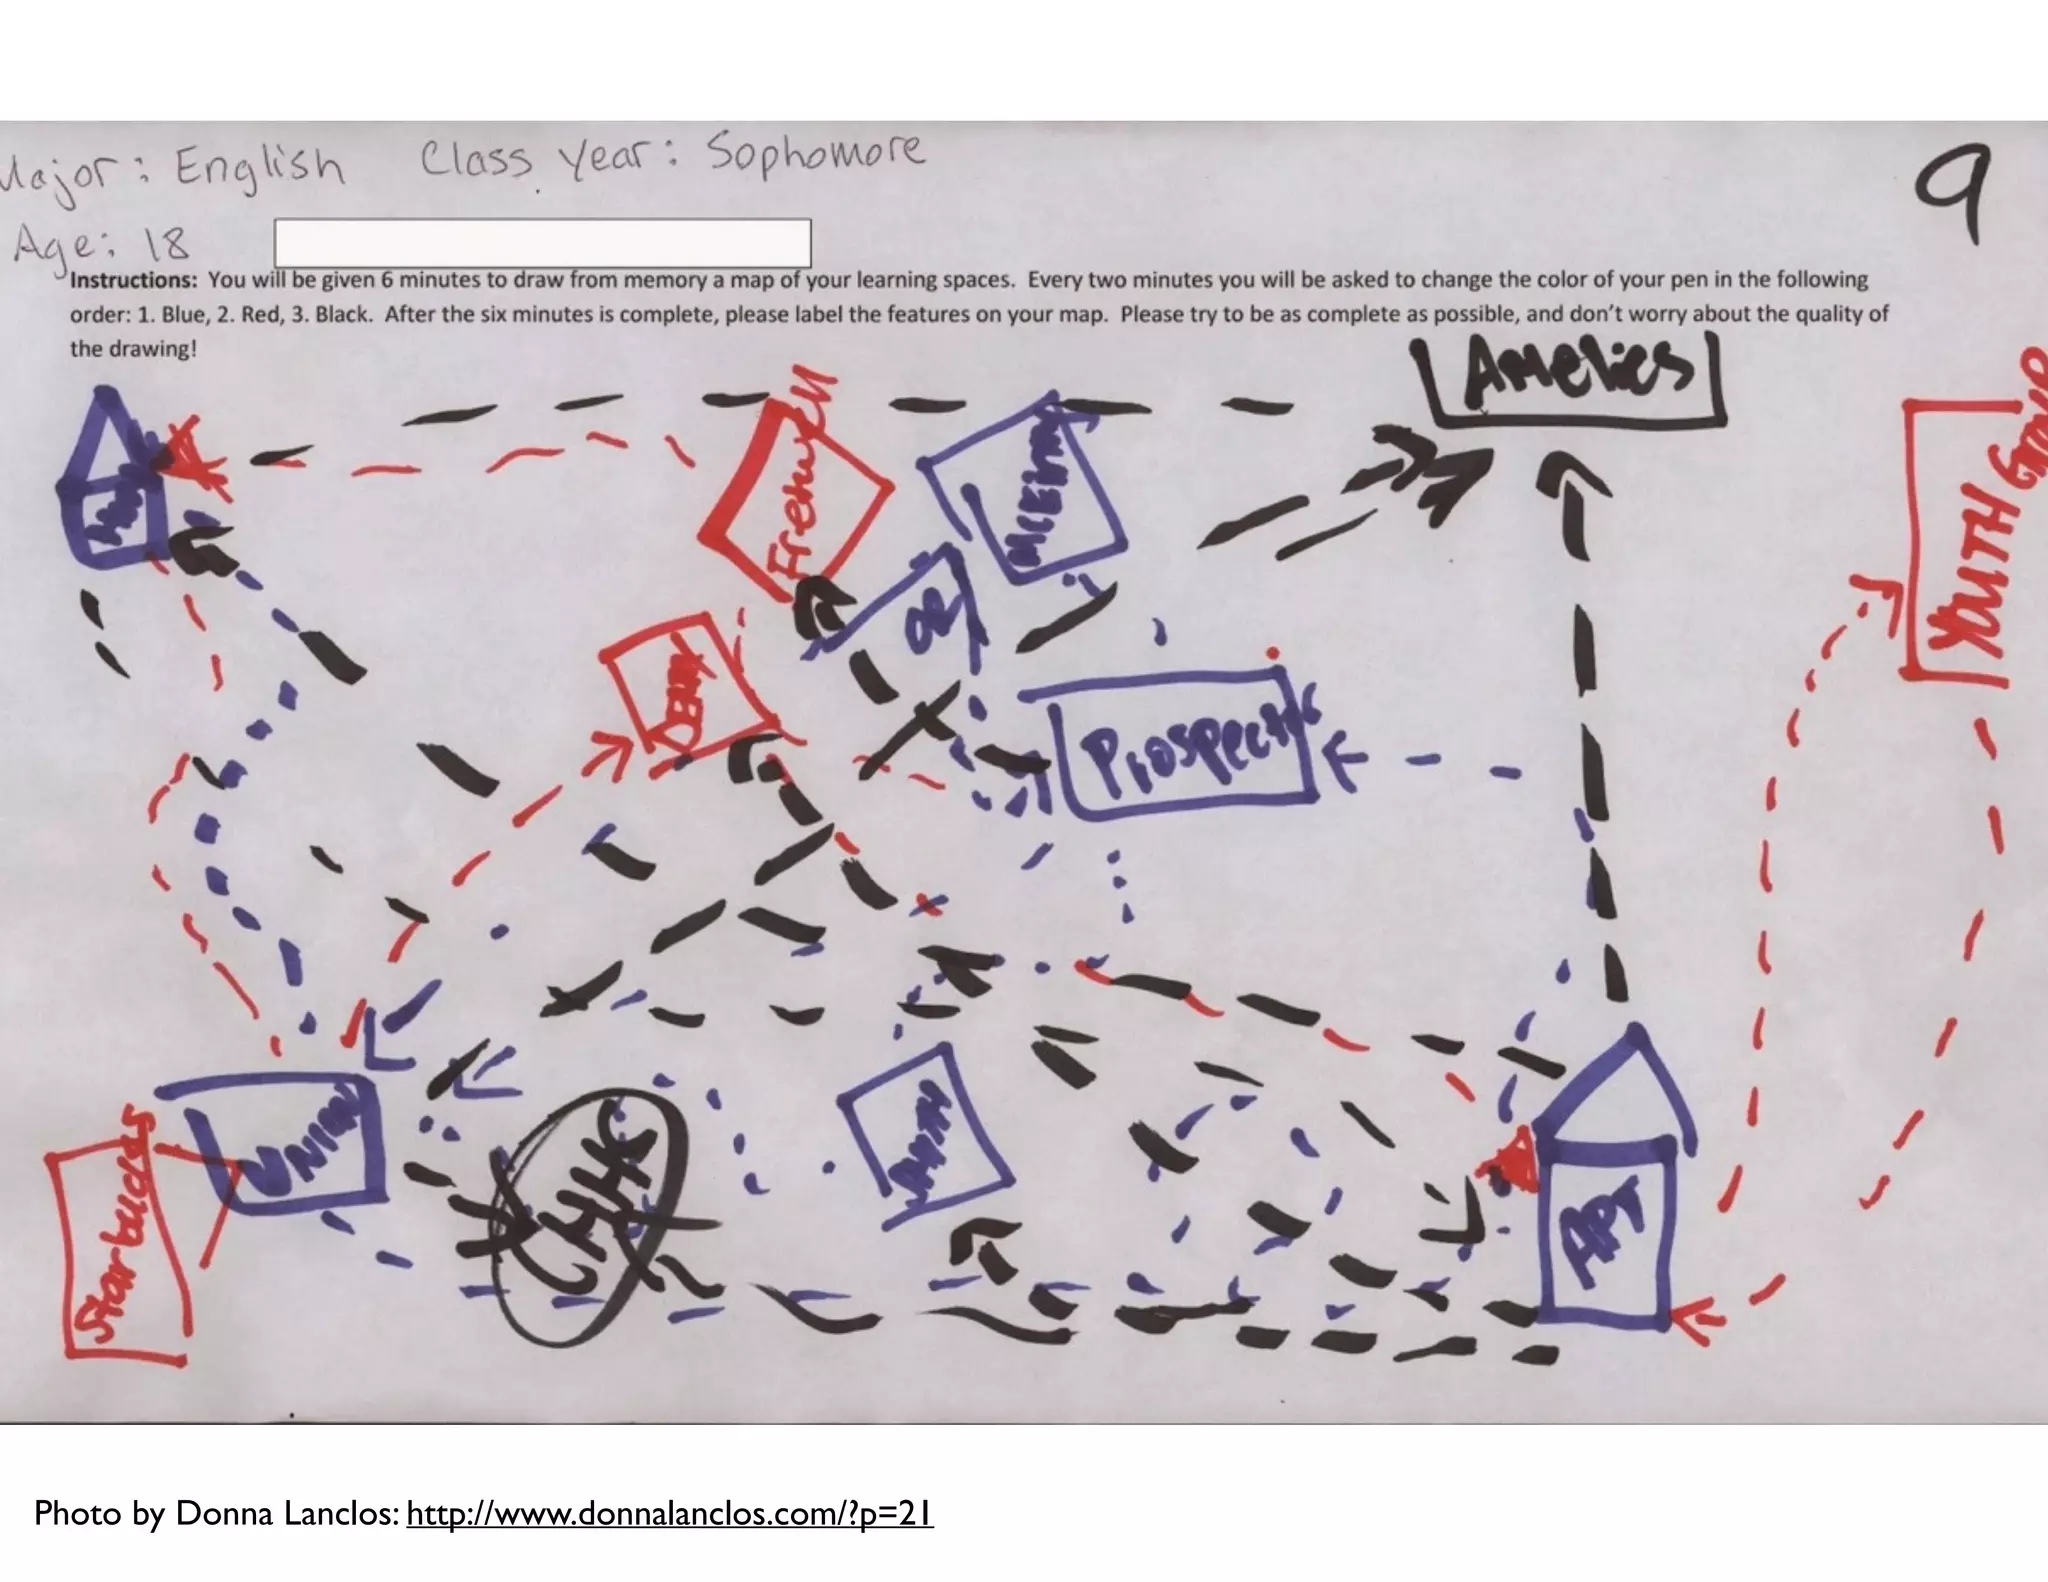 Major: English Class Year: Sophomore
9
Age: 18
Instructions: You will be given 6 minutes to draw from memory a map of your learning spaces. Every two minutes you will be asked to change the color of your pen in the following
order: 1. Blue, 2. Red, 3. Black. After the six minutes is complete, please label the features on your map. Please try to be as complete as possible, and don't worry about the quality of
the drawing!
Amelies
YOUTH Group
Prospector
CHHS
UNION
Starbucks
APT
Photo by Donna Lanclos: http://www.donnalanclos.com/?p=21